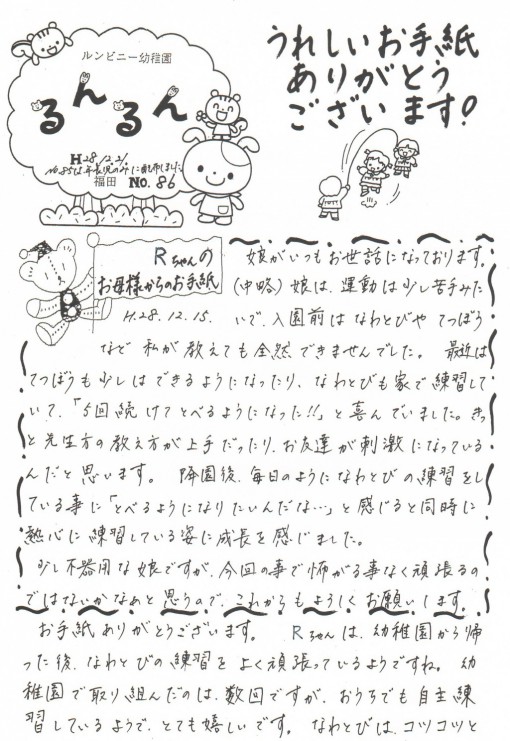 ルンビニー幼稚園
るんるん
H28.12.21.
No.85は年長児のみに配布しました
福田 No.86
うれしいお手紙
ありがとう
ございます!
Rちゃんの
お母様からのお手紙
H.28.12.15.
娘がいつもお世話になっております。
(中略)娘は、運動は少し苦手みた
いで、入園前はなわとびや てつぼう
など 私が教えても全然できませんでした。 最近は
てつぼうも少しはできるようになったり、なわとびも家で練習して
いて、「5回続けてとべるようになった!!」と喜んでいました。きっ
と先生方の教え方が上手だったり、お友達が刺激になっている
んだと思います。 降園後、毎日のようになわとびの練習をし
ている事に「とべるようになりたいんだな…」と感じると同時に
熱心に練習している姿に成長を感じました。
少し不器用な娘ですが、今回の事で怖がる事なく頑張るの
ではないかなあと思うので、これからもよろしくお願いします。
お手紙ありがとうございます。 Rちゃんは、幼稚園から帰
った後、なわとびの練習をよく頑張っているようですね。 幼
稚園で取り組んだのは、数回ですが、おうちでも自主練
習しているようで、とても嬉しいです。 なわとびは、コツコツと